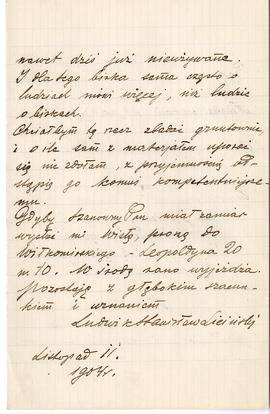 nawet dziś już nieużywane.
I dlatego birka sama często o
ludziach mówi więcej, niż ludzie
o birkach.
Chciałbym tę rzecz zbadać gruntownie,
i o ile sam z materjałem uporać
się nie zdołam, z przyjemnością od-
stąpię go komuś kompetentniejsze-
mu.
Gdyby Szanowny Pan miał zamiar
wysłać mi Wisłę, proszę do
Witkomirskiego - Leopoldyna 20
m 10. W środę rano wyjeżdża.
Pozostaję z głębokim szacun-
kiem i uznaniem
Ludwik Stanisław
Listopad 11.
1904 r.